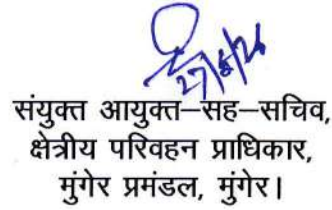 27/5/26
संयुक्त आयुक्त–सह–सचिव,
क्षेत्रीय परिवहन प्राधिकार,
मुंगेर प्रमंडल, मुंगेर।